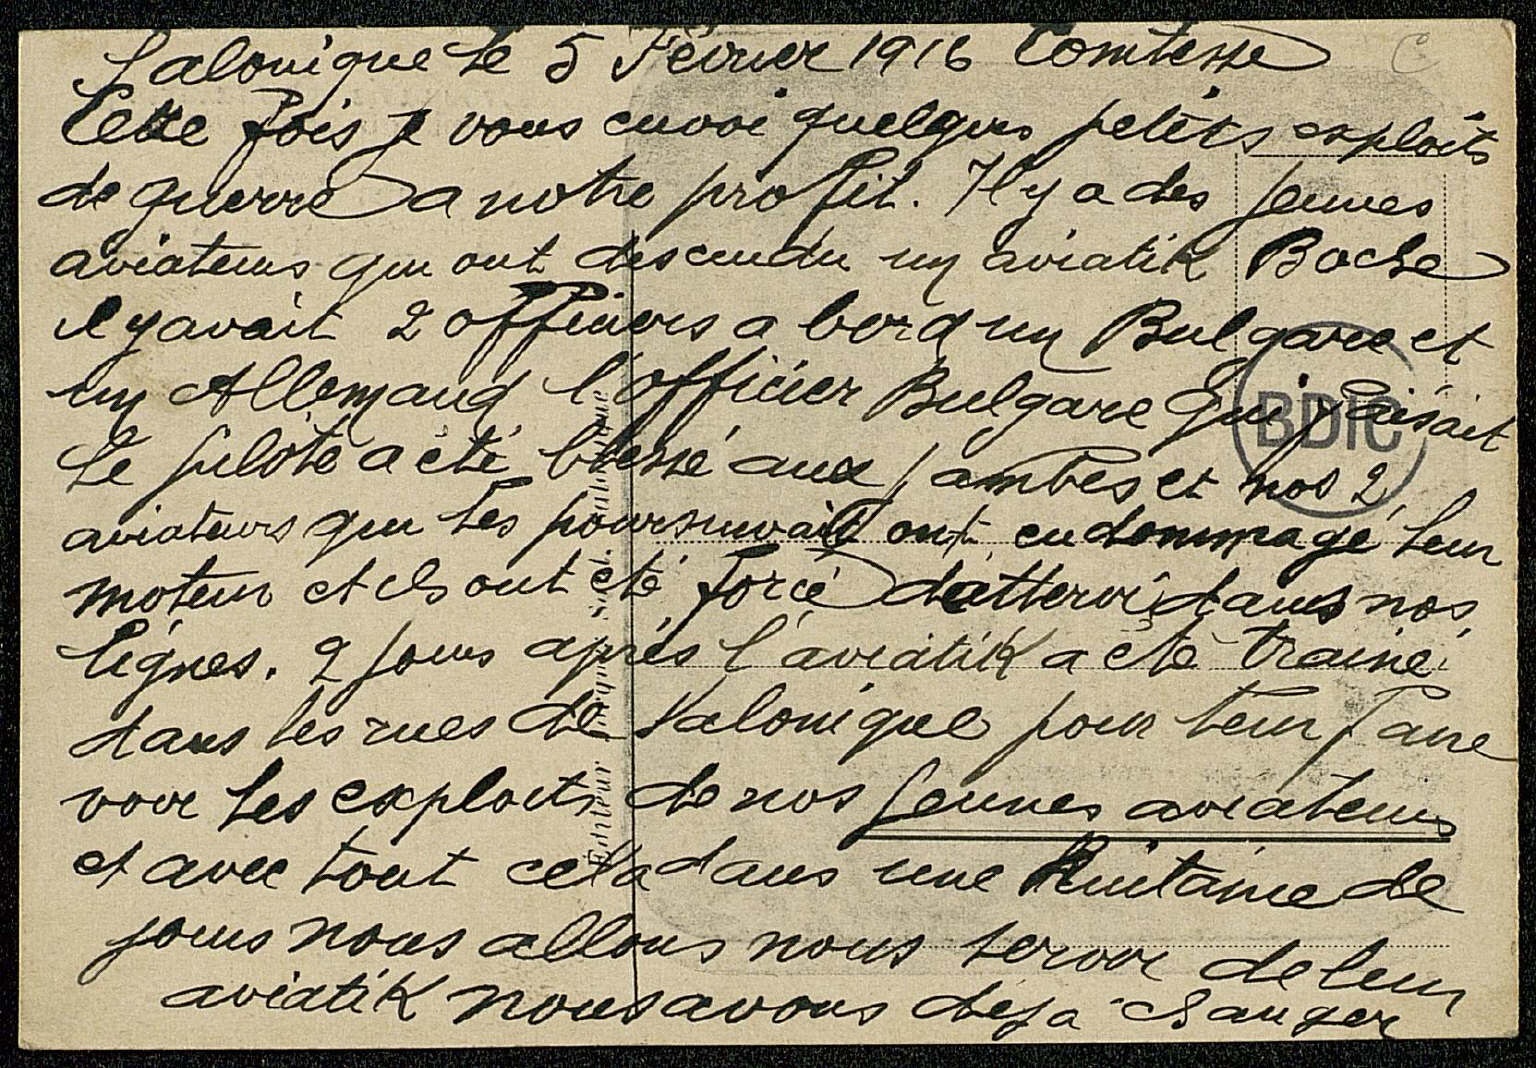 Salonique le 5 Février 1916 Comtesse
Cette fois je vous envoi quelques petits exploits
de guerre a notre profit. Il y a des jeunes
aviateurs qui ont descendu un aviatik Boche
il y avait 2 officiers a bord un Bulgare et
un Allemand l'officier Bulgare qui faisait
le pilote a été blessé aux jambes et nos 2
aviateurs qui les poursuivait ont endommagé leur
moteur et ils ont été forcé d'atterri dans nos
lignes. 2 jours après l'aviatik a été trainé
dans les rues de Salonique pour leur faire
voir les exploits de nos jeunes aviateurs
et avec tout cela dans une huitaine de
jours nous allons nous servir de leur
aviatik nous avons déja changer
BDIC
Éditeur
C